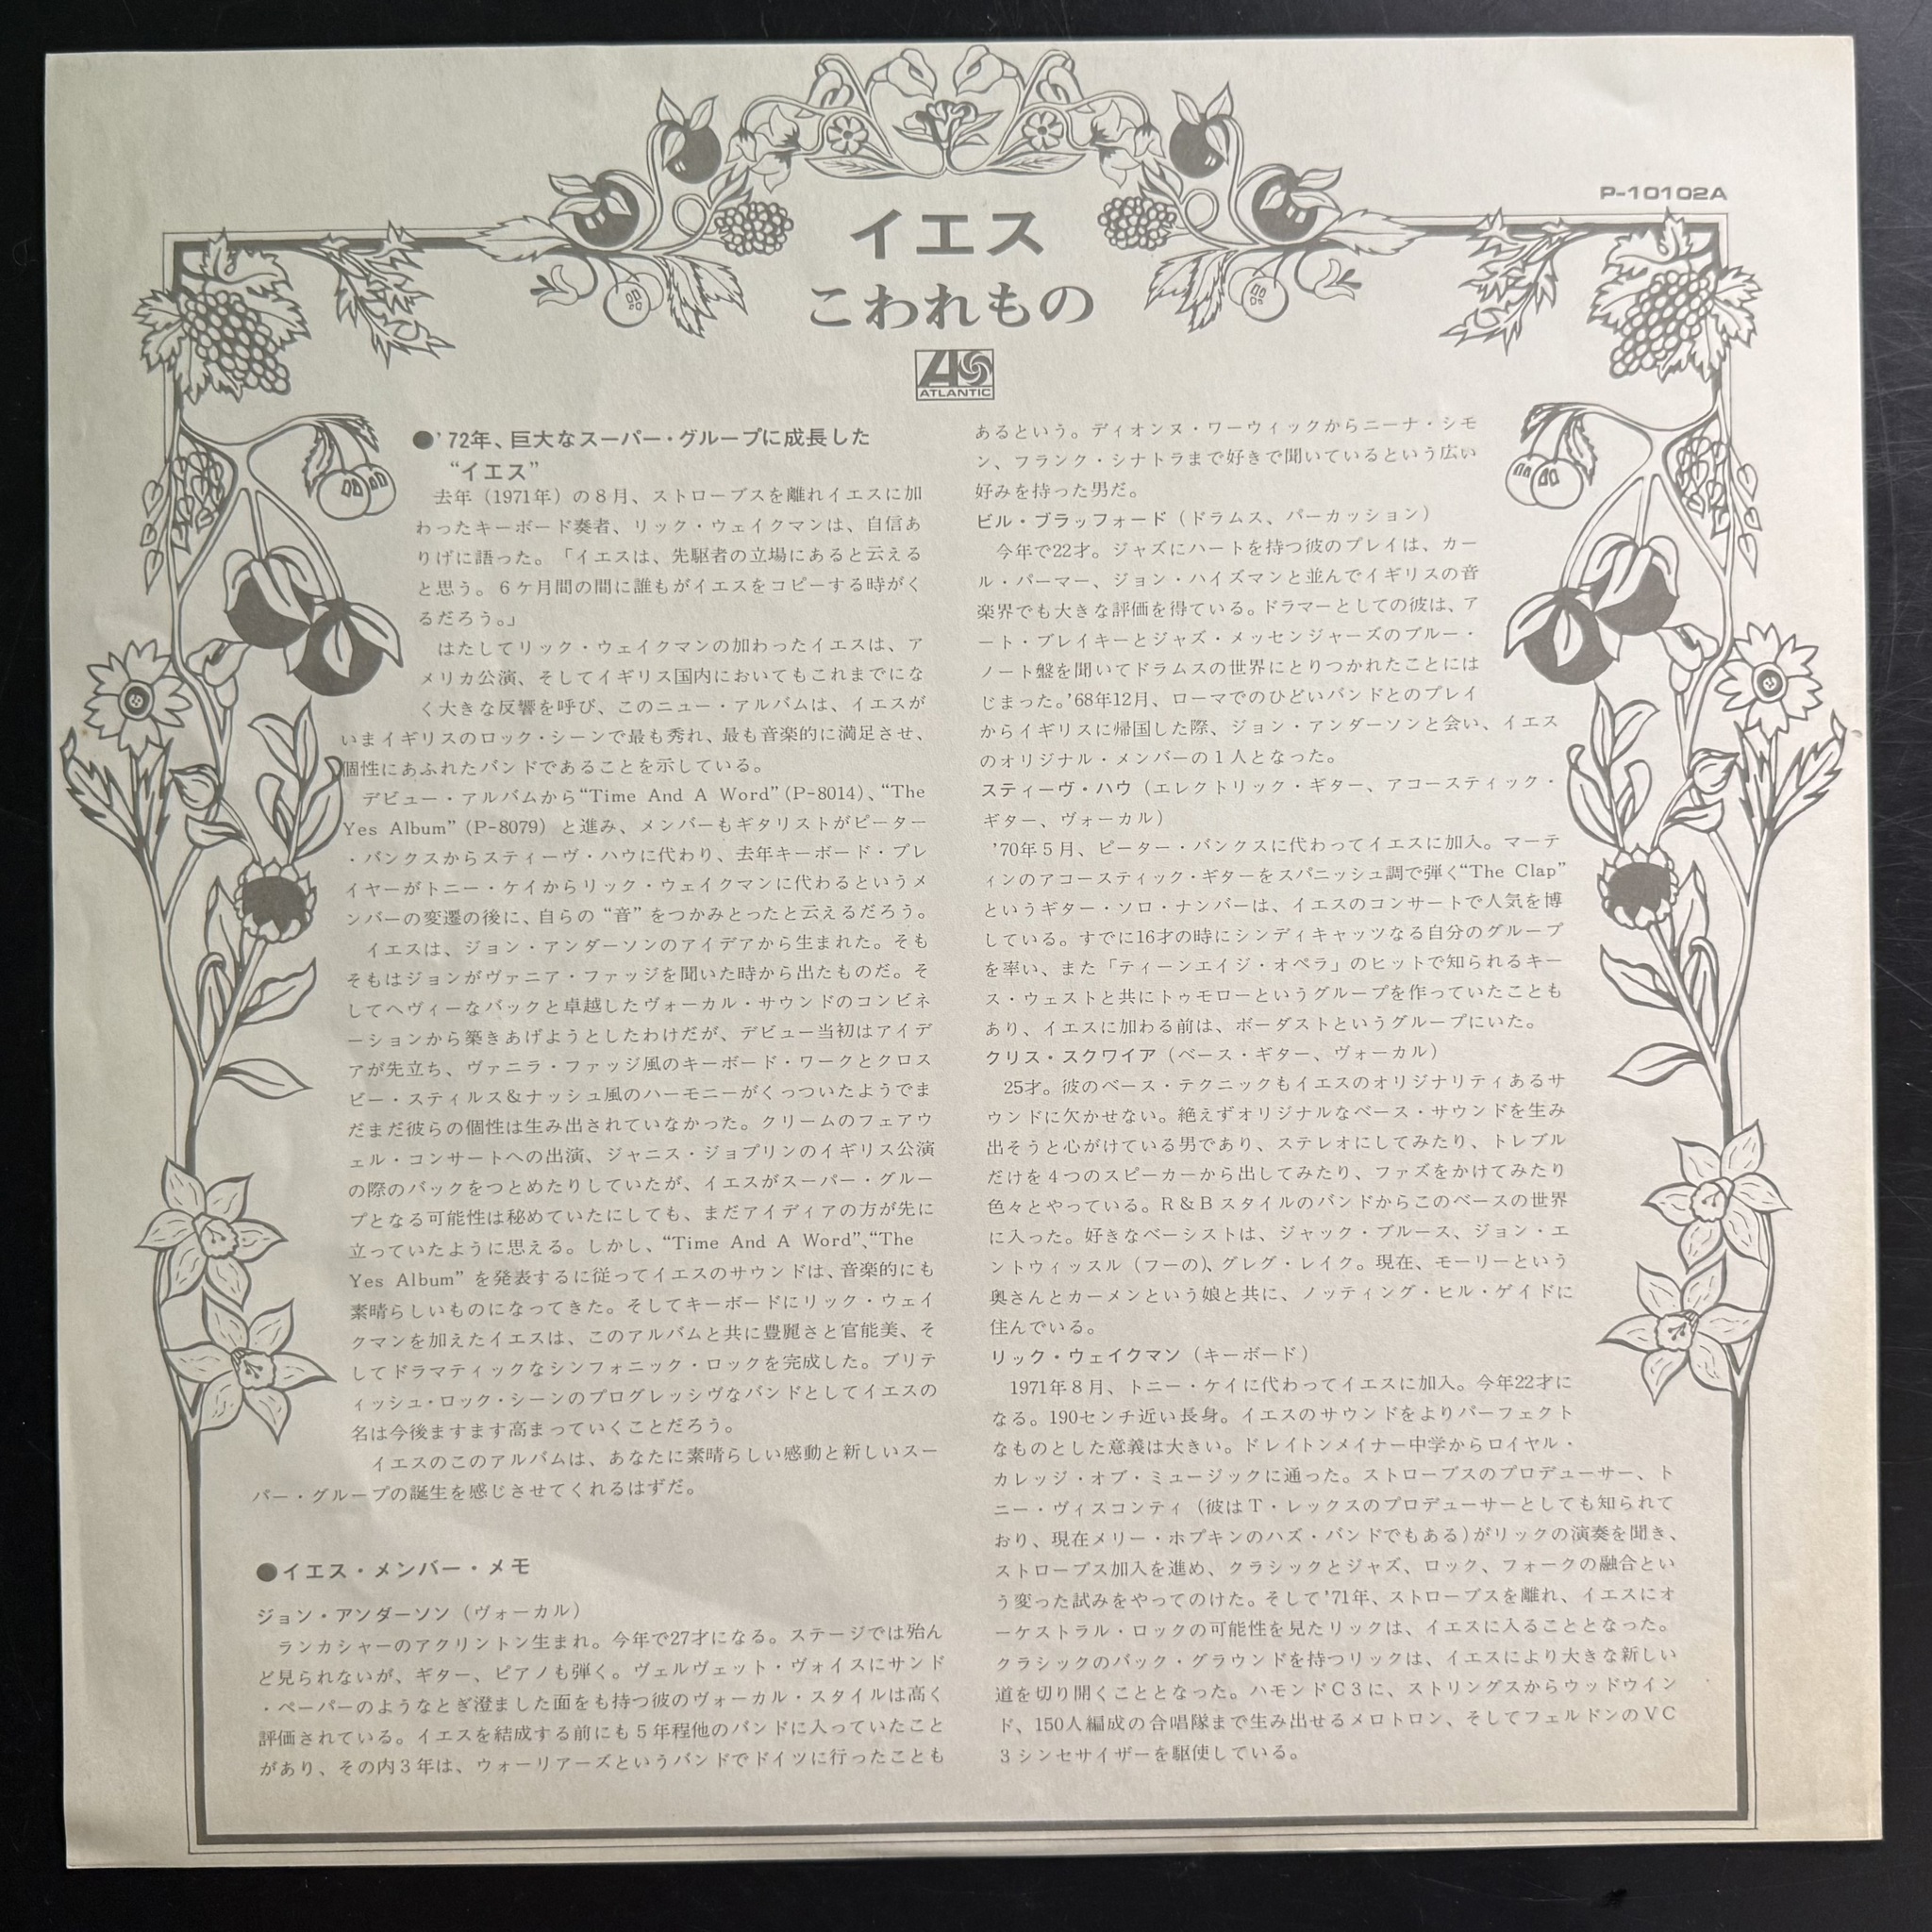 P-10102A
イエス
こわれもの
ATLANTIC
●'72年、巨大なスーパー・グループに成長した
“イエス”
去年（1971年）の８月、ストローブスを離れイエスに加
わったキーボード奏者、リック・ウェイクマンは、自信あ
りげに語った。「イエスは、先駆者の立場にあると云える
と思う。６ケ月間の間に誰もがイエスをコピーする時がく
るだろう。」
はたしてリック・ウェイクマンの加わったイエスは、ア
メリカ公演、そしてイギリス国内においてもこれまでにな
く大きな反響を呼び、このニュー・アルバムは、イエスが
いまイギリスのロック・シーンで最も秀れ、最も音楽的に満足させ、
個性にあふれたバンドであることを示している。
デビュー・アルバムから“Time And A Word”（P-8014）、“The
Yes Album”（P-8079）と進み、メンバーもギタリストがピーター
・バンクスからスティーヴ・ハウに代わり、去年キーボード・プレ
イヤーがトニー・ケイからリック・ウェイクマンに代わるというメ
ンバーの変遷の後に、自らの“音”をつかみとったと云えるだろう。
イエスは、ジョン・アンダーソンのアイデアから生まれた。そも
そもはジョンがヴァニア・ファッジを聞いた時から出たものだ。そ
してヘヴィーなバックと卓越したヴォーカル・サウンドのコンビネ
ーションから築きあげようとしたわけだが、デビュー当初はアイデ
アが先立ち、ヴァニラ・ファッジ風のキーボード・ワークとクロス
ビー・スティルス＆ナッシュ風のハーモニーがくっついたようでま
だまだ彼らの個性は生み出されていなかった。クリームのフェアウ
ェル・コンサートへの出演、ジャニス・ジョプリンのイギリス公演
の際のバックをつとめたりしていたが、イエスがスーパー・グルー
プとなる可能性は秘めていたにしても、まだアイディアの方が先に
立っていたように思える。しかし、“Time And A Word”、“The
Yes Album” を発表するに従ってイエスのサウンドは、音楽的にも
素晴らしいものになってきた。そしてキーボードにリック・ウェイ
クマンを加えたイエスは、このアルバムと共に豊麗さと官能美、そ
してドラマティックなシンフォニック・ロックを完成した。ブリテ
ィッシュ・ロック・シーンのプログレッシヴなバンドとしてイエスの
名は今後ますます高まっていくことだろう。
イエスのこのアルバムは、あなたに素晴らしい感動と新しいスー
パー・グループの誕生を感じさせてくれるはずだ。
●イエス・メンバー・メモ
ジョン・アンダーソン（ヴォーカル）
ランカシャーのアクリントン生まれ。今年で27才になる。ステージでは殆ん
ど見られないが、ギター、ピアノも弾く。ヴェルヴェット・ヴォイスにサンド
・ペーパーのようなとぎ澄ました面をも持つ彼のヴォーカル・スタイルは高く
評価されている。イエスを結成する前にも５年程他のバンドに入っていたこと
があり、その内３年は、ウォーリアーズというバンドでドイツに行ったことも
あるという。ディオンヌ・ワーウィックからニーナ・シモ
ン、フランク・シナトラまで好きで聞いているという広い
好みを持った男だ。
ビル・ブラッフォード（ドラムス、パーカッション）
今年で22才。ジャズにハートを持つ彼のプレイは、カー
ル・パーマー、ジョン・ハイズマンと並んでイギリスの音
楽界でも大きな評価を得ている。ドラマーとしての彼は、ア
ート・ブレイキーとジャズ・メッセンジャーズのブルー・
ノート盤を聞いてドラムスの世界にとりつかれたことには
じまった。'68年12月、ローマでのひどいバンドとのプレイ
からイギリスに帰国した際、ジョン・アンダーソンと会い、イエス
のオリジナル・メンバーの１人となった。
スティーヴ・ハウ（エレクトリック・ギター、アコースティック・
ギター、ヴォーカル）
'70年５月、ピーター・バンクスに代わってイエスに加入。マーテ
ィンのアコースティック・ギターをスパニッシュ調で弾く“The Clap”
というギター・ソロ・ナンバーは、イエスのコンサートで人気を博
している。すでに16才の時にシンディキャッツなる自分のグループ
を率い、また「ティーンエイジ・オペラ」のヒットで知られるキー
ス・ウェストと共にトゥモローというグループを作っていたことも
あり、イエスに加わる前は、ボーダストというグループにいた。
クリス・スクワイア（ベース・ギター、ヴォーカル）
25才。彼のベース・テクニックもイエスのオリジナリティあるサ
ウンドに欠かせない。絶えずオリジナルなベース・サウンドを生み
出そうと心がけている男であり、ステレオにしてみたり、トレブル
だけを４つのスピーカーから出してみたり、ファズをかけてみたり
色々とやっている。Ｒ＆Ｂスタイルのバンドからこのベースの世界
に入った。好きなベーシストは、ジャック・ブルース、ジョン・エ
ントウィッスル（フーの）、グレグ・レイク。現在、モーリーという
奥さんとカーメンという娘と共に、ノッティング・ヒル・ゲイドに
住んでいる。
リック・ウェイクマン（キーボード）
1971年８月、トニー・ケイに代わってイエスに加入。今年22才に
なる。190センチ近い長身。イエスのサウンドをよりパーフェクト
なものとした意義は大きい。ドレイトンメイナー中学からロイヤル・
カレッジ・オブ・ミュージックに通った。ストローブスのプロデューサー、ト
ニー・ヴィスコンティ（彼はＴ・レックスのプロデューサーとしても知られて
おり、現在メリー・ホプキンのハズ・バンドでもある）がリックの演奏を聞き、
ストローブス加入を進め、クラシックとジャズ、ロック、フォークの融合とい
う変った試みをやってのけた。そして'71年、ストローブスを離れ、イエスにオ
ーケストラル・ロックの可能性を見たリックは、イエスに入ることとなった。
クラシックのバック・グラウンドを持つリックは、イエスにより大きな新しい
道を切り開くこととなった。ハモンドＣ３に、ストリングスからウッドウイン
ド、150人編成の合唱隊まで生み出せるメロトロン、そしてフェルドンのＶＣ
３シンセサイザーを駆使している。